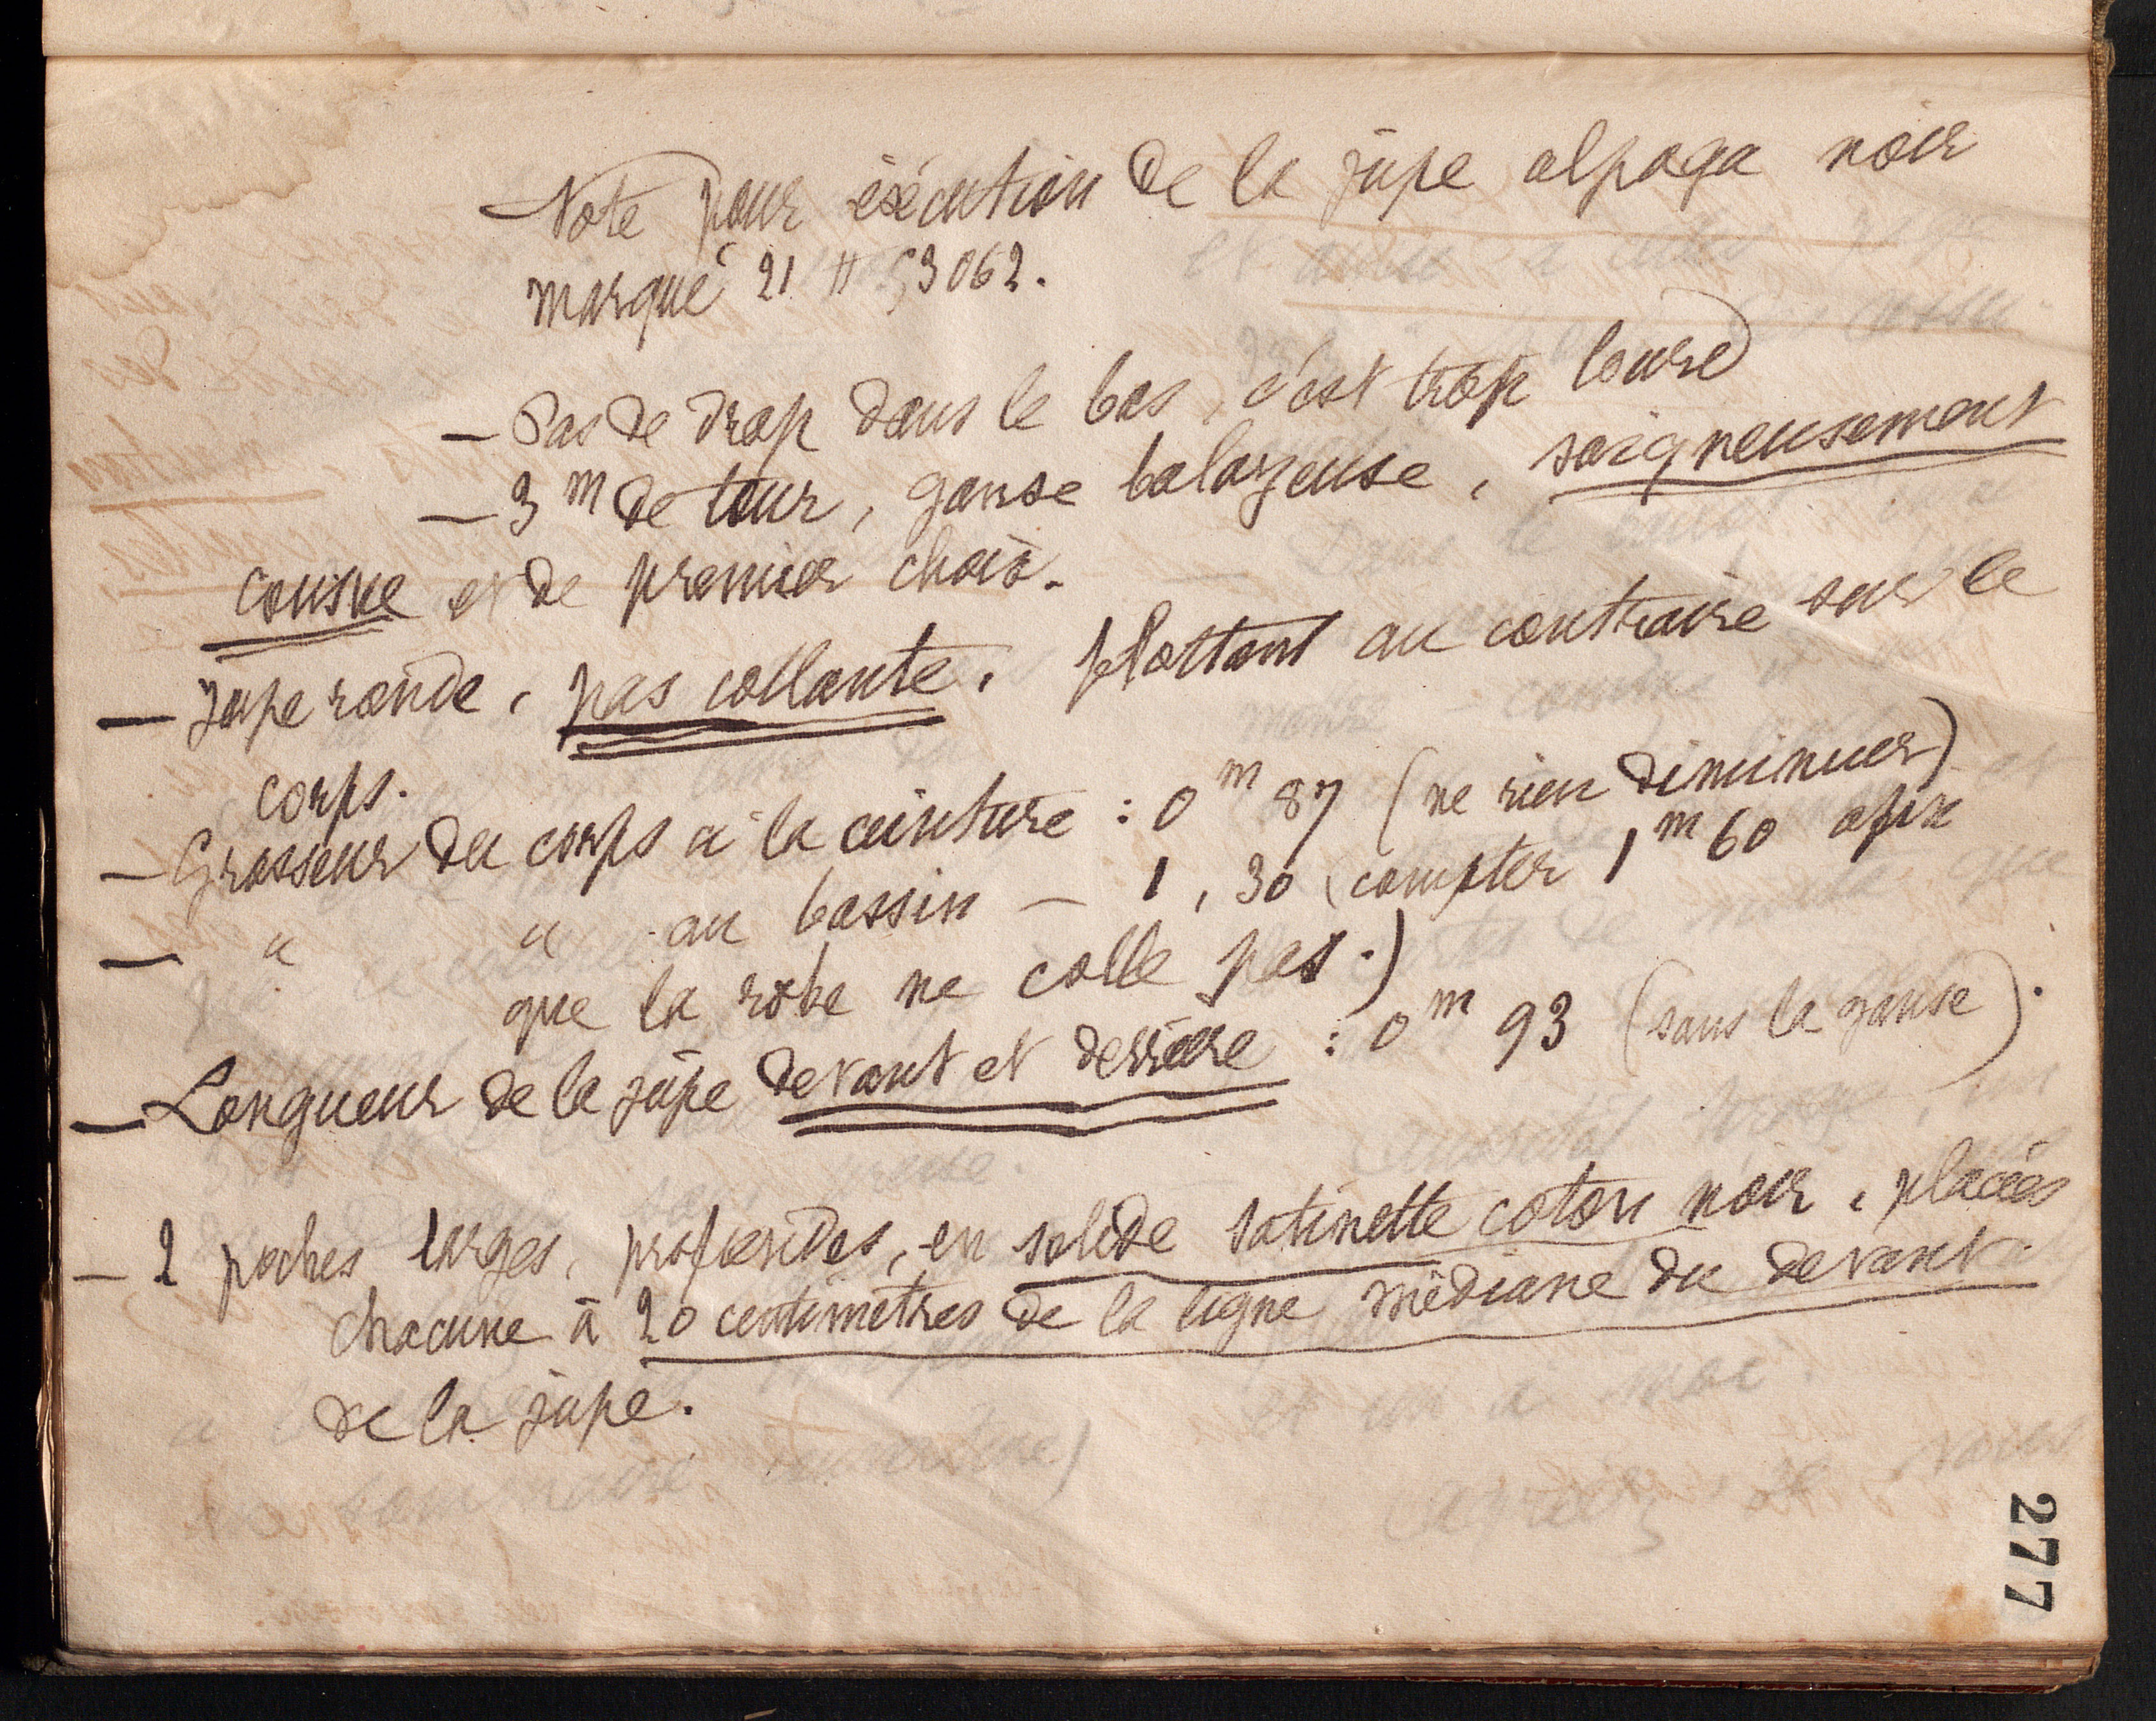 Note pour éxécution de la jupe alpaga noir
marqué 21 " 53062.
— Pas de drap dans le bas, c'est trop lourd
— 3 m de tour, ganse balayeuse, soigneusement
cousue et de premier choix.
— Jupe ronde, pas collante, flottant au contraire sur le
corps.
— Grosseur du corps à la ceinture : 0 m 87 (ne rien diminuer)
— " " au bassin — 1, 30 (compter 1 m 60 afin
que la robe ne colle pas.)
— Longueur de la jupe devant et derrière : 0 m 93 (sans la ganse).
— 2 poches larges, profondes, en solide satinette coton noir, placées
chacune à 20 centimètres de la ligne médiane du devant
de la jupe.
277